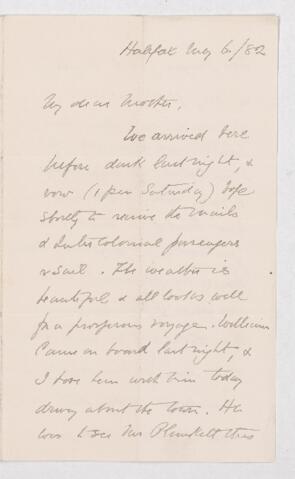 Halifax May 6/82
My dear Mother,
We arrived here
before dark last night, &
now (1 pm Saturday) hope
shortly to receive the mails
& Intercolonial passengers
& sail. The weather is
beautiful & all looks well
for a prosperous voyage. William
came on board last night, &
I have been with him today
driving about the town. He
was to see Mr Plunkett this